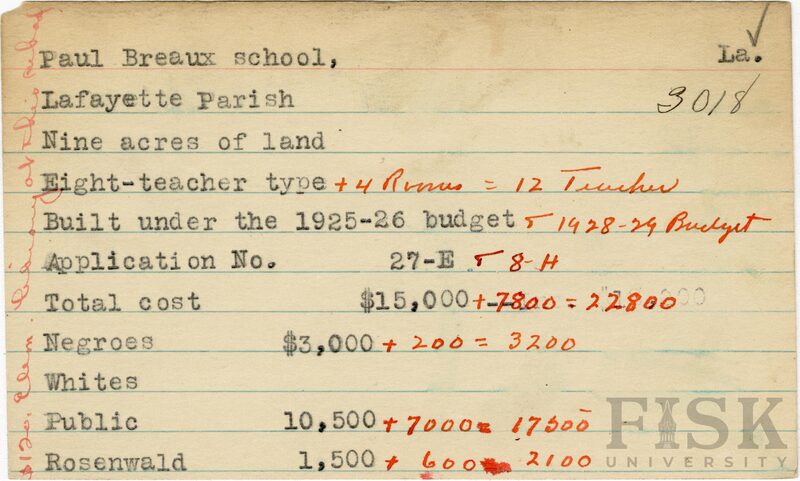 Paul Breaux school, La.
3018
Lafayette Parish
Nine acres of land
Eight-teacher type + 4 Rooms = 12 Teacher
Built under the 1925-26 budget & 1928-29 Budget
Application No. 27-E & 8-H
Total cost $15,000 + 7800 = 22800
Negroes $3,000 + 200 = 3200
Whites
Public 10,500 + 7000 = 17500
Rosenwald 1,500 + 600 = 2100
$120. Elem. Library at this school
FISK
UNIVERSITY